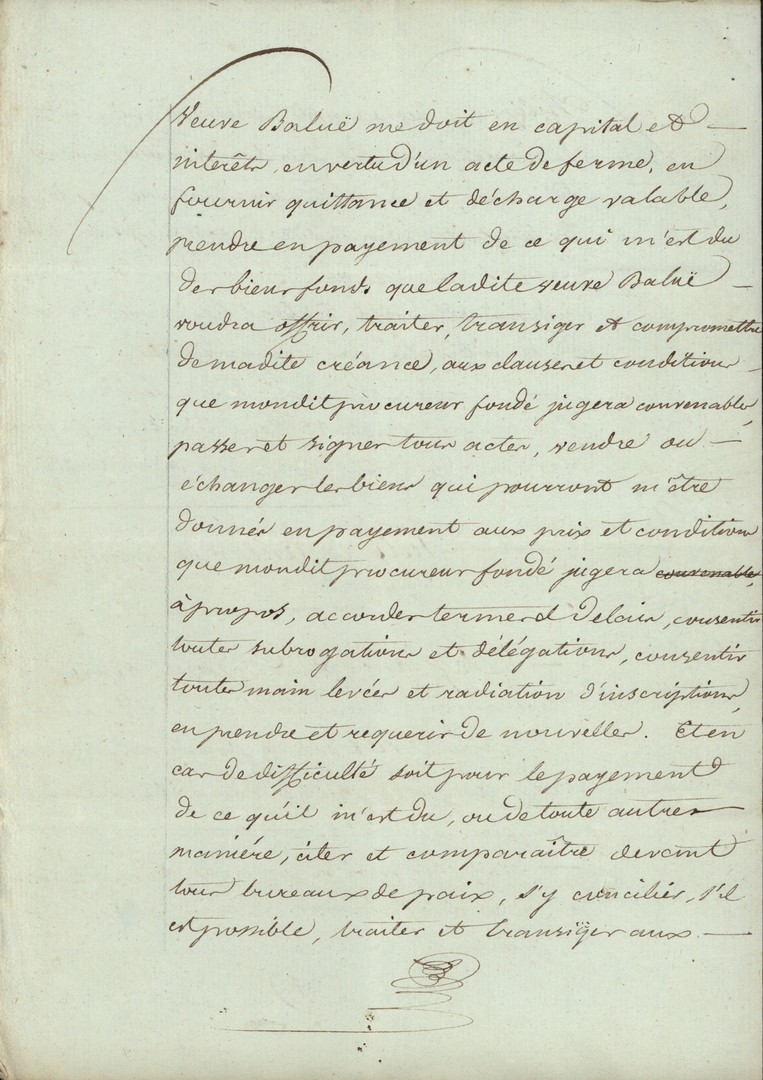 Veuve Baluë me doit en capital et —
interêts, en vertu d'un acte de ferme, en
fournir quittance et décharge valable,
prendre en payement de ce qui m'est du
des biens fonds que ladite veuve Baluë —
voudra offrir, traiter, transiger et compromettre
de madite créance, aux clauses et conditions —
que mondit procureur fondé jugera convenables,
passer et signer tous actes, vendre ou —
échanger les biens qui pourront m'être
donnés en payement aux prix et conditions
que mondit procureur fondé jugera convenables,
à propos, accorder termes et delais, consentir
toutes subrogations et délégations, consentir
toutes main levées et radiation d'inscriptions,
en prendre et requerir de nouvelles. Et en
cas de difficulté soit pour le payement
de ce qu'il m'est du, ou de toute autres
maniére, citer et comparaître devant
tous bureaux de paix, s'y concilier, s'il
est possible, traiter et transiger aux —